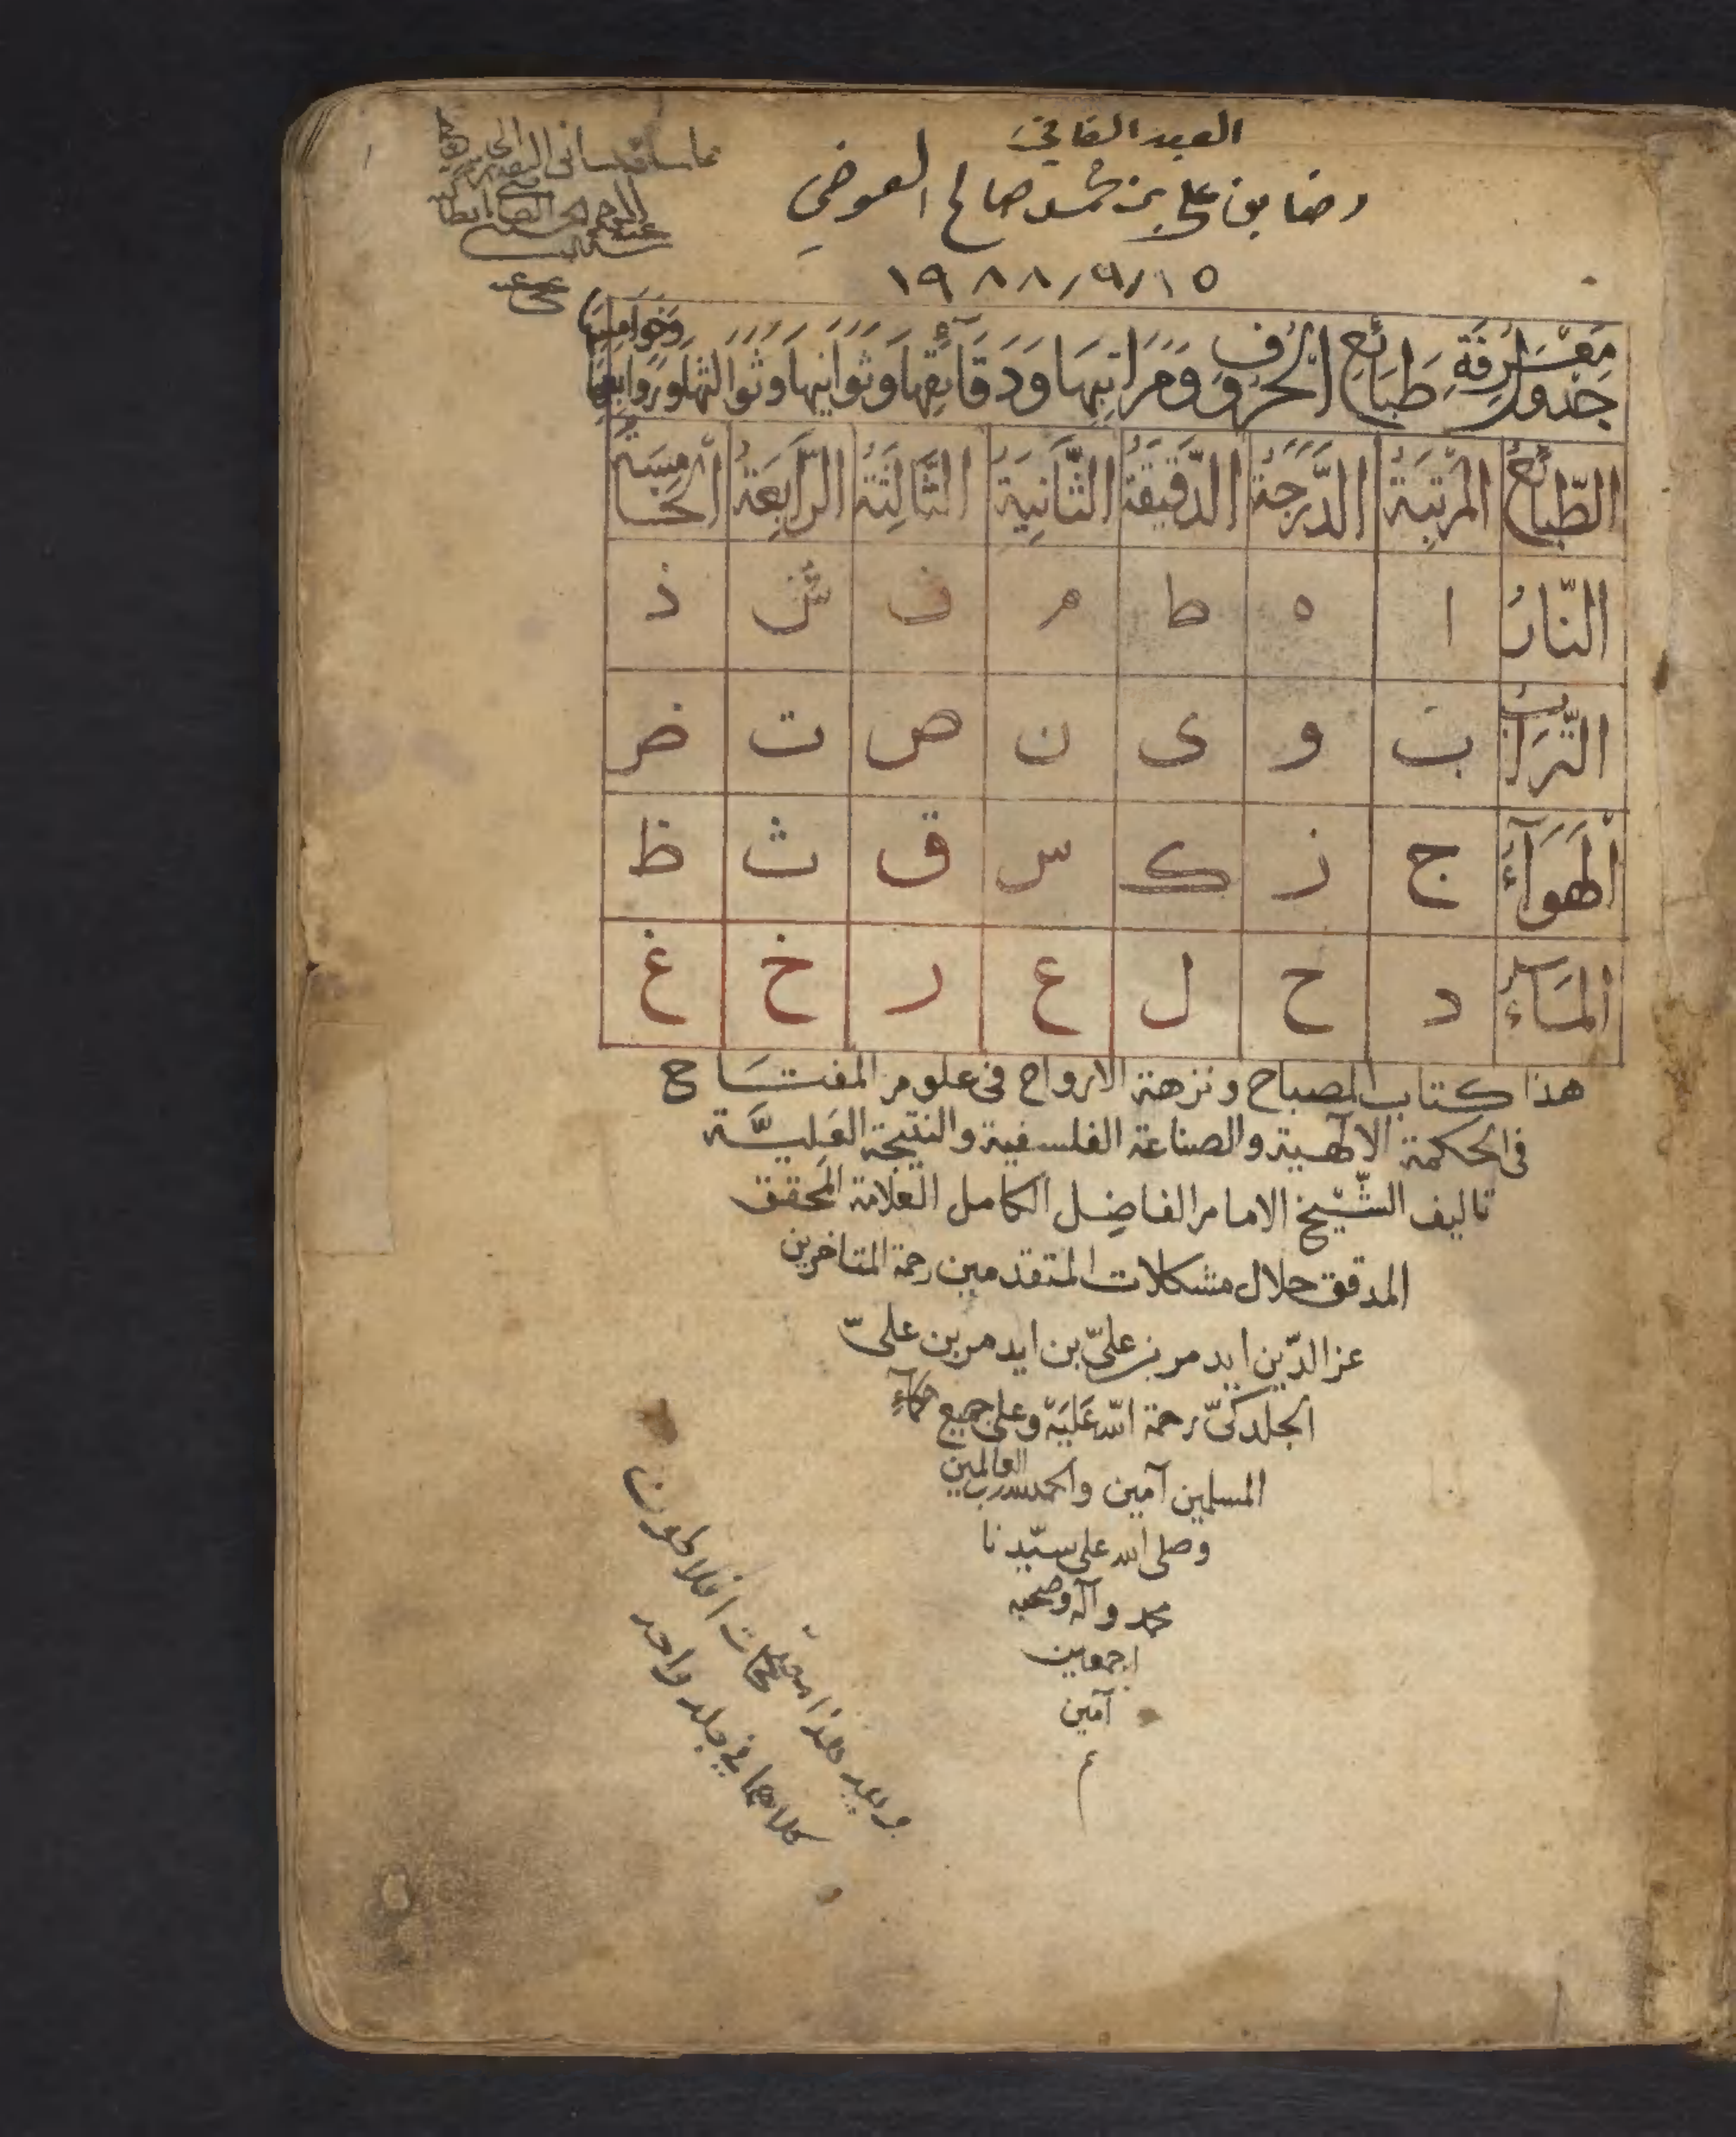 العبد الفاني
رضا بن علي بن محمد صالح العوضي
١٩٨٨/٩/١٥
جَدْوَلُ مَعْرِفَةِ طَبَائِعِ الْحُرُوفِ وَمَرَاتِبِهَا وَدَقَآئِقِهَا وَثَوَانِيهَا وَثَوَالِثِهَا وَرَوَابِعِهَا وَخَوَامِسِهَا
الطَّبَائِعُ الْمَرْتَبَةُ الدَّرَجَةُ الدَّقِيقَةُ الثَّانِيَةُ الثَّالِثَةُ الرَّابِعَةُ الْخَامِسَةُ
النَّارُ ا ه ط م ف ش ذ
التُّرَابُ ب و ى ن ص ت ض
الْهَوَآءُ ج ز ك س ق ث ظ
الْمَآءُ د ح ل ع ر خ غ
هذا كتاب المصباح ونزهة الارواح فى علوم المفتاح
فى الحكمة الالهية والصناعة الفلسفية والنتيجة العمليّة
تاليف الشّيخ الامام الفاضل الكامل العلامة المحقق
المدقق حلال مشكلات المتقدمين رحمة المتاخرين
عز الدّين ايدمر بن علىّ بن ايدمر بن علىّ
الجلدكىّ رحمة الله عَلَيْهِ وعلى جميع حكمآء
المسلمين آمين والحمد لله رب العالمين
وصلى الله على سيّدنا
محمد وآله وصحبه
اجمعين
آمين
م
وبعد هذا مصححات افلاطون
كلاهما في جلد واحد